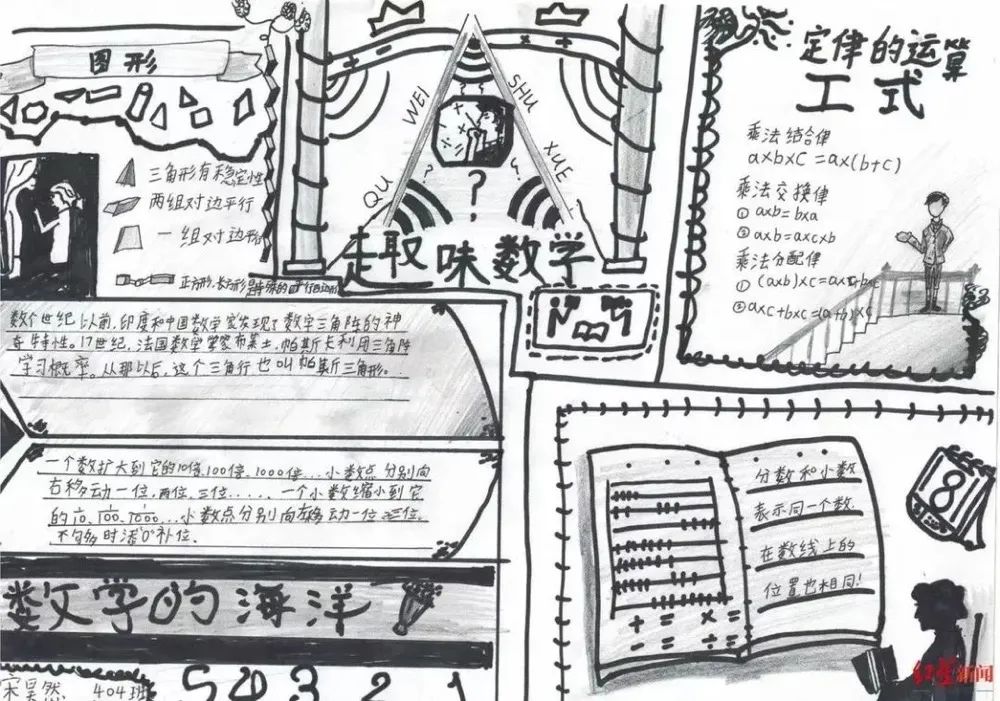 图形
三角形有稳定性
两组对边平行
一组对边平行
正方形,长方形是特殊的平行四边形
QU WEI SHU XUE
趣味数学
定律的运算
工式
乘法结合律
a×b×c=a×(b+c)
乘法交换律
① a×b=b×a
② a×b=a×c×b
乘法分配律
① (a×b)×c=a×c+b×c
② a×c+b×c=(a+b)×c
数个世纪以前,印度和中国数学家发现了数字三角阵的神
奇特性。17世纪,法国数学家布莱士.帕斯卡利用三角阵
学习概率。从那以后,这个三角行也叫帕斯三角形。
一个数扩大到它的10倍,100倍,1000倍...小数点分别向
右移动一位,两位,三位......一个小数缩小到它
的1/10,1/100,1/1000...小数点分别向左移动一位,二位,三位。
不够多时添"0"补位.
数学的海洋
宋昊然 404班
5 0 3 2 1
+ = × =
- = ÷ =
分数和小数
表示同一个数.
在数线上的
位置也相同!
8
红星新闻